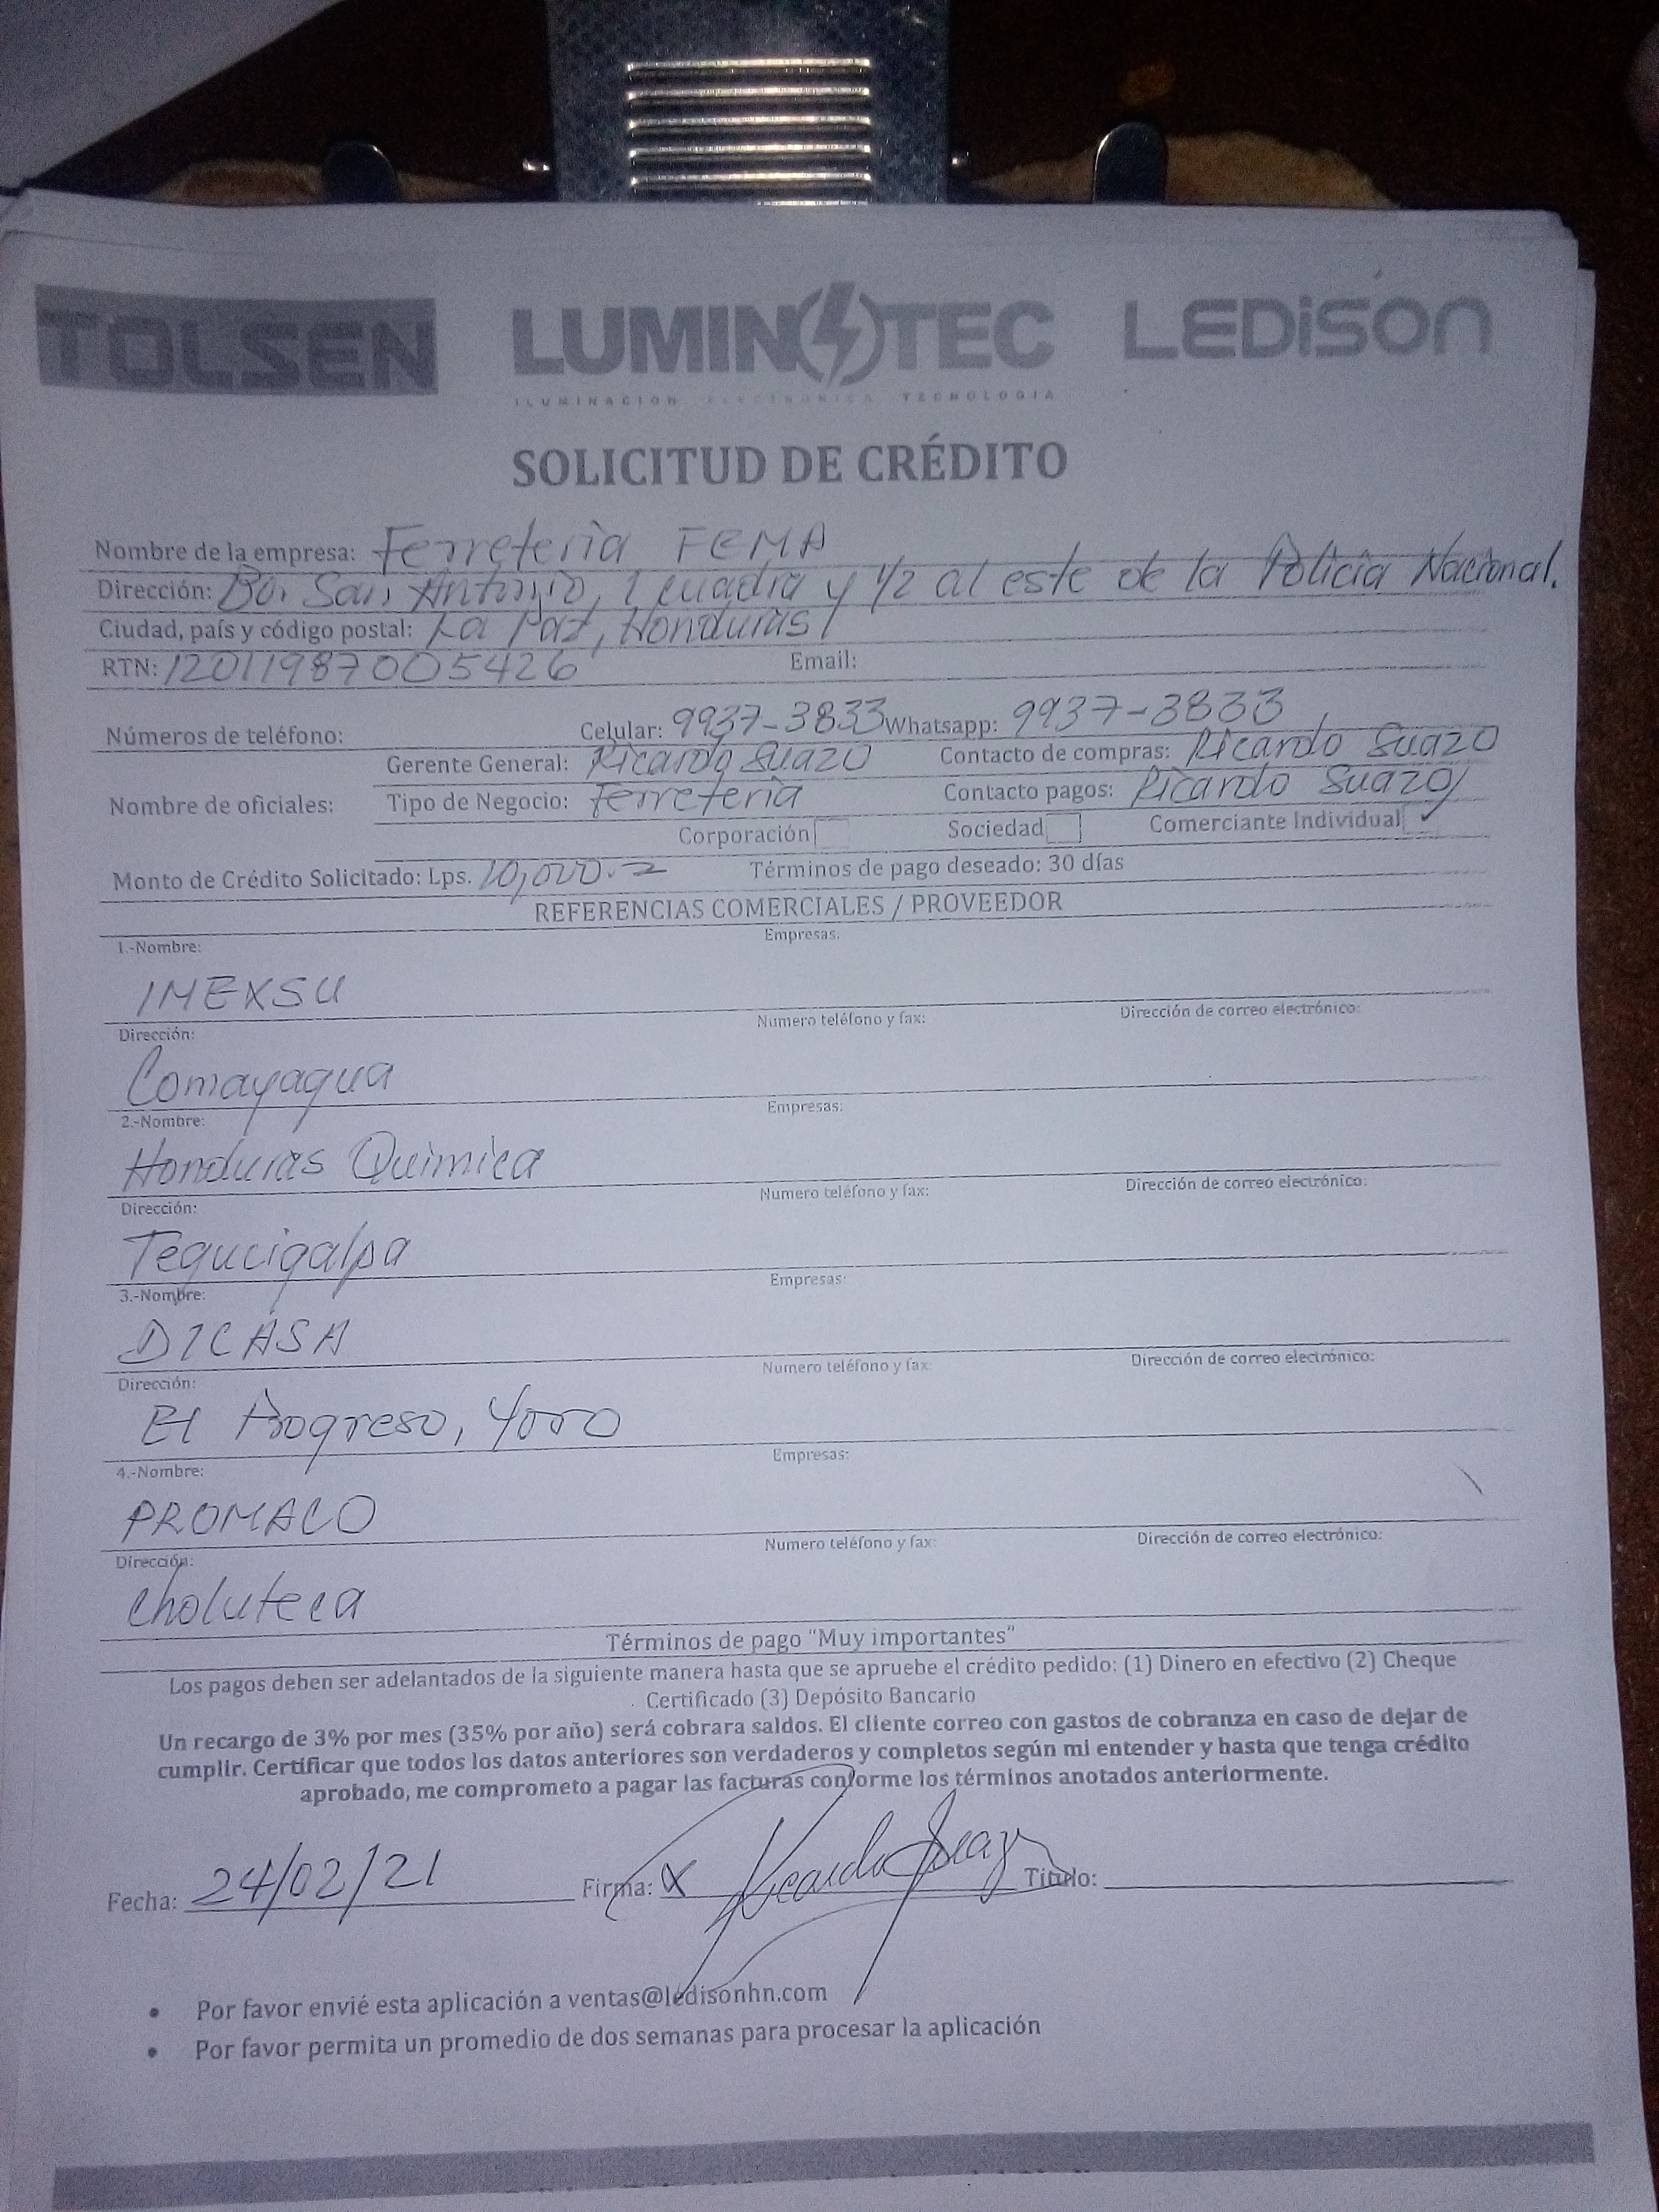 TOLSEN LUMINOTEC LEDISON
ILUMINACION ELECTRONICA TECNOLOGIA
SOLICITUD DE CRÉDITO
Nombre de la empresa: Ferretería FEMA
Dirección: Bo. San Antonio, 1 cuadra y 1/2 al este de la Policia Nacional.
Ciudad, país y código postal: La Paz, Honduras
RTN: 12011987005426 Email:
Números de teléfono: Celular: 9937-3833 Whatsapp: 9937-3833
Gerente General: Ricardo Suazo Contacto de compras: Ricardo Suazo
Nombre de oficiales: Tipo de Negocio: Ferretería Contacto pagos: Ricardo Suazo
Corporación Sociedad Comerciante Individual ✓
Monto de Crédito Solicitado: Lps. 10,000.- Términos de pago deseado: 30 días
REFERENCIAS COMERCIALES / PROVEEDOR
1.-Nombre: Empresas:
IMEXSU
Dirección: Numero teléfono y fax: Dirección de correo electrónico:
Comayagua
2.-Nombre: Empresas:
Honduras Quimica
Dirección: Numero teléfono y fax: Dirección de correo electrónico:
Tegucigalpa
3.-Nombre: Empresas:
DICASA
Dirección: Numero teléfono y fax: Dirección de correo electrónico:
El Progreso, Yoro
4.-Nombre: Empresas:
PROMACO
Dirección: Numero teléfono y fax: Dirección de correo electrónico:
Choluteca
Términos de pago "Muy importantes"
Los pagos deben ser adelantados de la siguiente manera hasta que se apruebe el crédito pedido: (1) Dinero en efectivo (2) Cheque
Certificado (3) Depósito Bancario
Un recargo de 3% por mes (35% por año) será cobrara saldos. El cliente correo con gastos de cobranza en caso de dejar de
cumplir. Certificar que todos los datos anteriores son verdaderos y completos según mi entender y hasta que tenga crédito
aprobado, me comprometo a pagar las facturas conforme los términos anotados anteriormente.
Fecha: 24/02/21 Firma: X Ricardo Suazo Titulo:
• Por favor envié esta aplicación a ventas@ledisonhn.com
• Por favor permita un promedio de dos semanas para procesar la aplicación